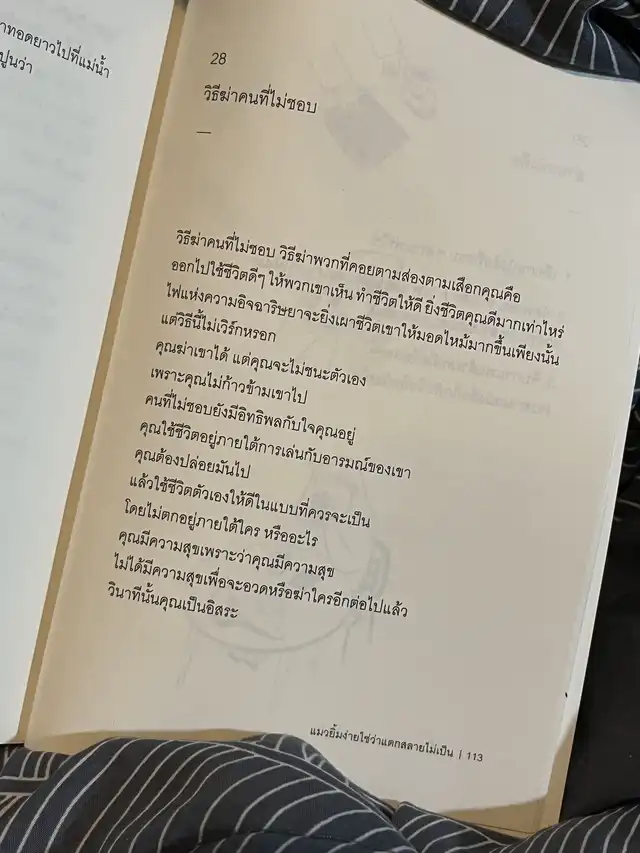 าทอดยาวไปที่แม่น้ำ
ปูนว่า
28
วิธีฆ่าคนที่ไม่ชอบ
—
วิธีฆ่าคนที่ไม่ชอบ วิธีฆ่าพวกที่คอยตามส่องตามเสือกคุณคือ
ออกไปใช้ชีวิตดีๆ ให้พวกเขาเห็น ทำชีวิตให้ดี ยิ่งชีวิตคุณดีมากเท่าไหร่
ไฟแห่งความอิจฉาริษยาจะยิ่งเผาชีวิตเขาให้มอดไหม้มากขึ้นเพียงนั้น
แต่วิธีนี้ไม่เวิร์กหรอก
คุณฆ่าเขาได้ แต่คุณจะไม่ชนะตัวเอง
เพราะคุณไม่ก้าวข้ามเขาไป
คนที่ไม่ชอบยังมีอิทธิพลกับใจคุณอยู่
คุณใช้ชีวิตอยู่ภายใต้การเล่นกับอารมณ์ของเขา
คุณต้องปล่อยมันไป
แล้วใช้ชีวิตตัวเองให้ดีในแบบที่ควรจะเป็น
โดยไม่ตกอยู่ภายใต้ใคร หรืออะไร
คุณมีความสุขเพราะว่าคุณมีความสุข
ไม่ได้มีความสุขเพื่อจะอวดหรือฆ่าใครอีกต่อไปแล้ว
วินาทีนั้นคุณเป็นอิสระ
แมวยิ้มง่ายใช่ว่าแตกสลายไม่เป็น | 113